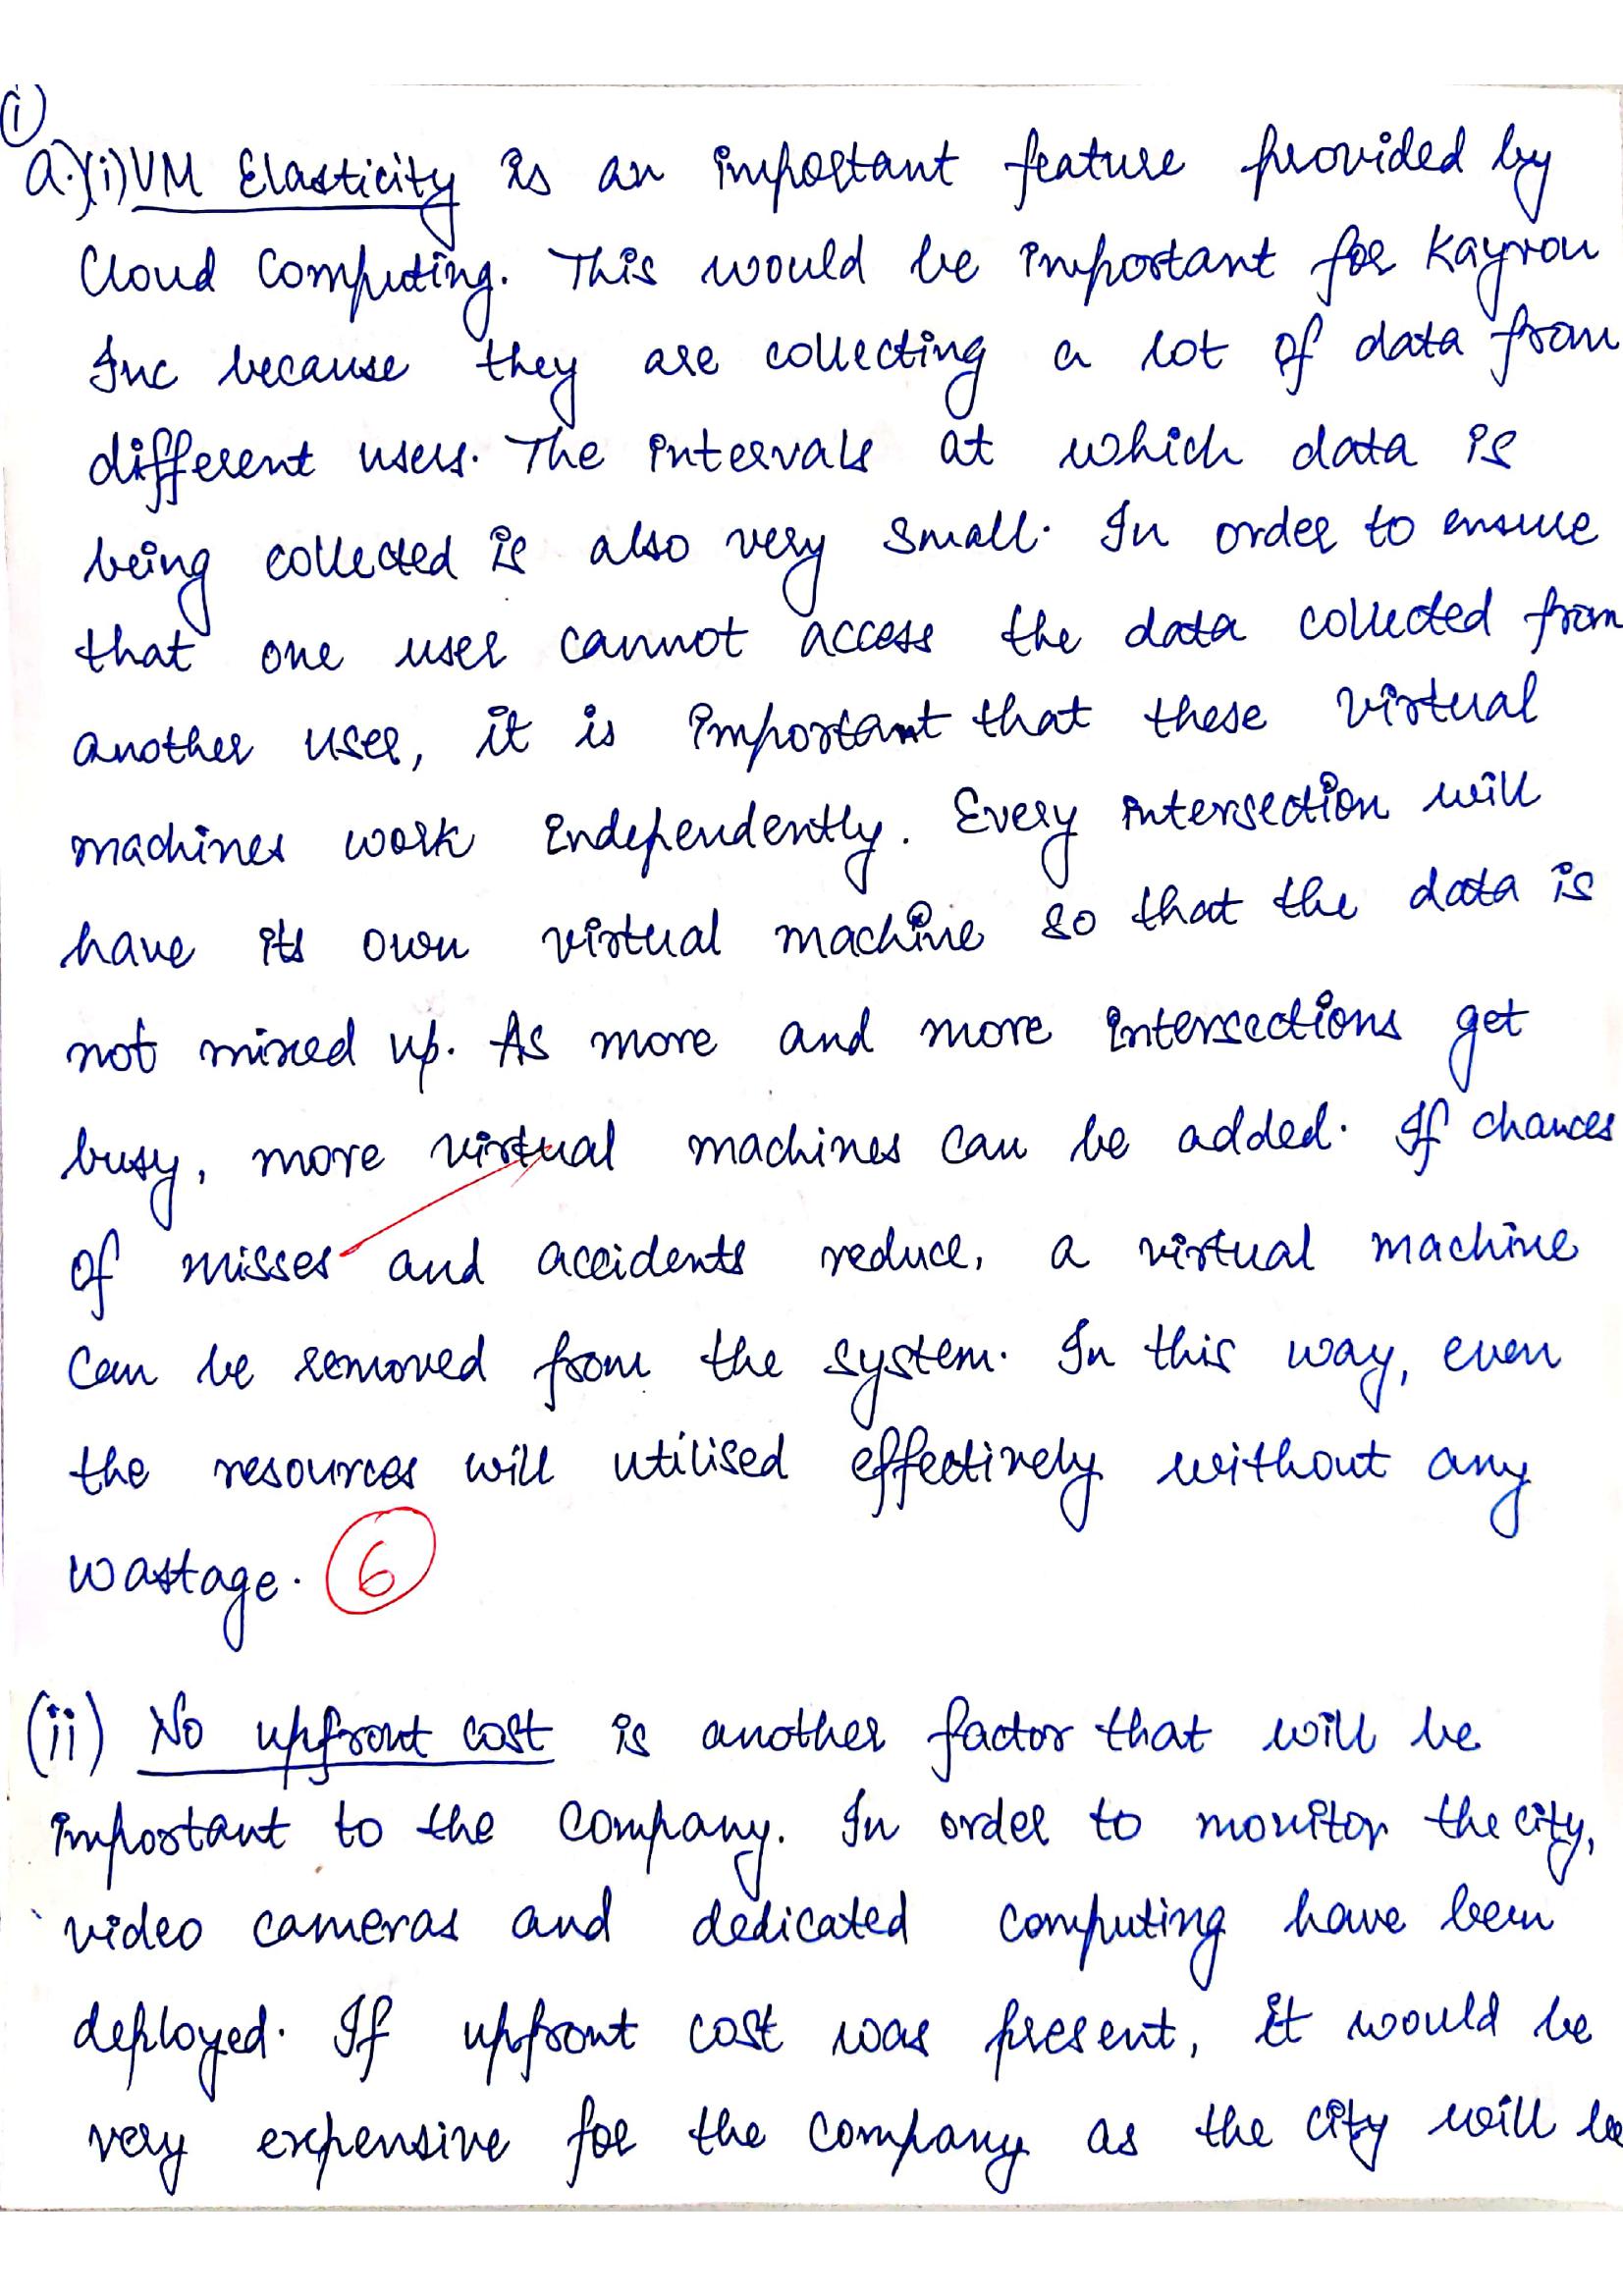 ①
a.)(i) VM Elasticity is an important feature provided by
Cloud Computing. This would be important for Kayrou
Inc because they are collecting a lot of data from
different users. The intervals at which data is
being collected is also very small. In order to ensure
that one user cannot access the data collected from
another user, it is important that these virtual
machines work independently. Every intersection will
have its own virtual machine so that the data is
not mixed up. As more and more intersections get
busy, more virtual machines can be added. If chances
of misses and accidents reduce, a virtual machine
can be removed from the system. In this way, even
the resources will utilised effectively without any
wastage. 6
(ii) No upfront cost is another factor that will be
important to the company. In order to monitor the city,
video cameras and dedicated computing have been
deployed. If upfront cost was present, it would be
very expensive for the company as the city will be